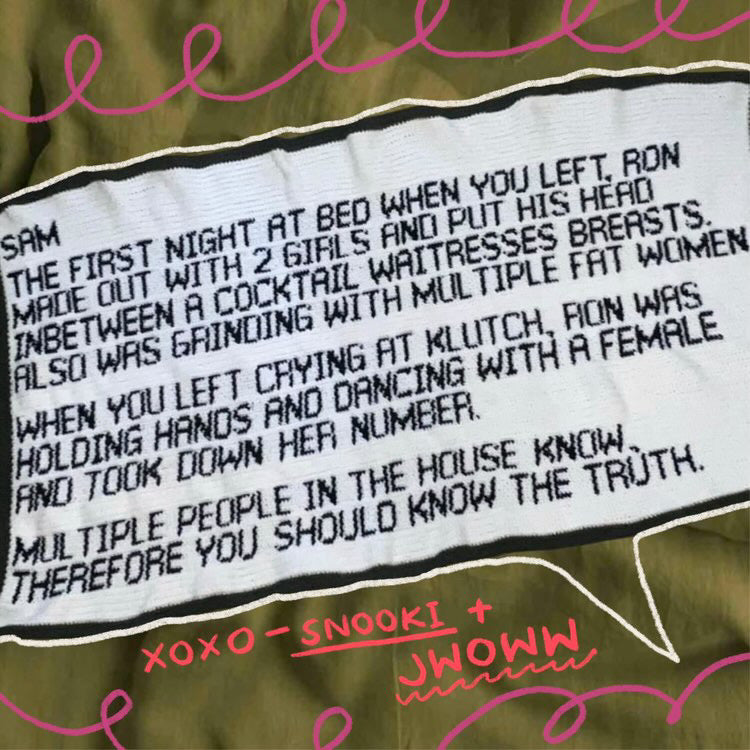 SAM
THE FIRST NIGHT AT BED WHEN YOU LEFT, RON
MADE OUT WITH 2 GIRLS AND PUT HIS HEAD
INBETWEEN A COCKTAIL WAITRESSES BREASTS.
ALSO WAS GRINDING WITH MULTIPLE FAT WOMEN
WHEN YOU LEFT CRYING AT KLUTCH, RON WAS
HOLDING HANDS AND DANCING WITH A FEMALE
AND TOOK DOWN HER NUMBER.
MULTIPLE PEOPLE IN THE HOUSE KNOW,
THEREFORE YOU SHOULD KNOW THE TRUTH.
XOXO-SNOOKI +
JWOWW